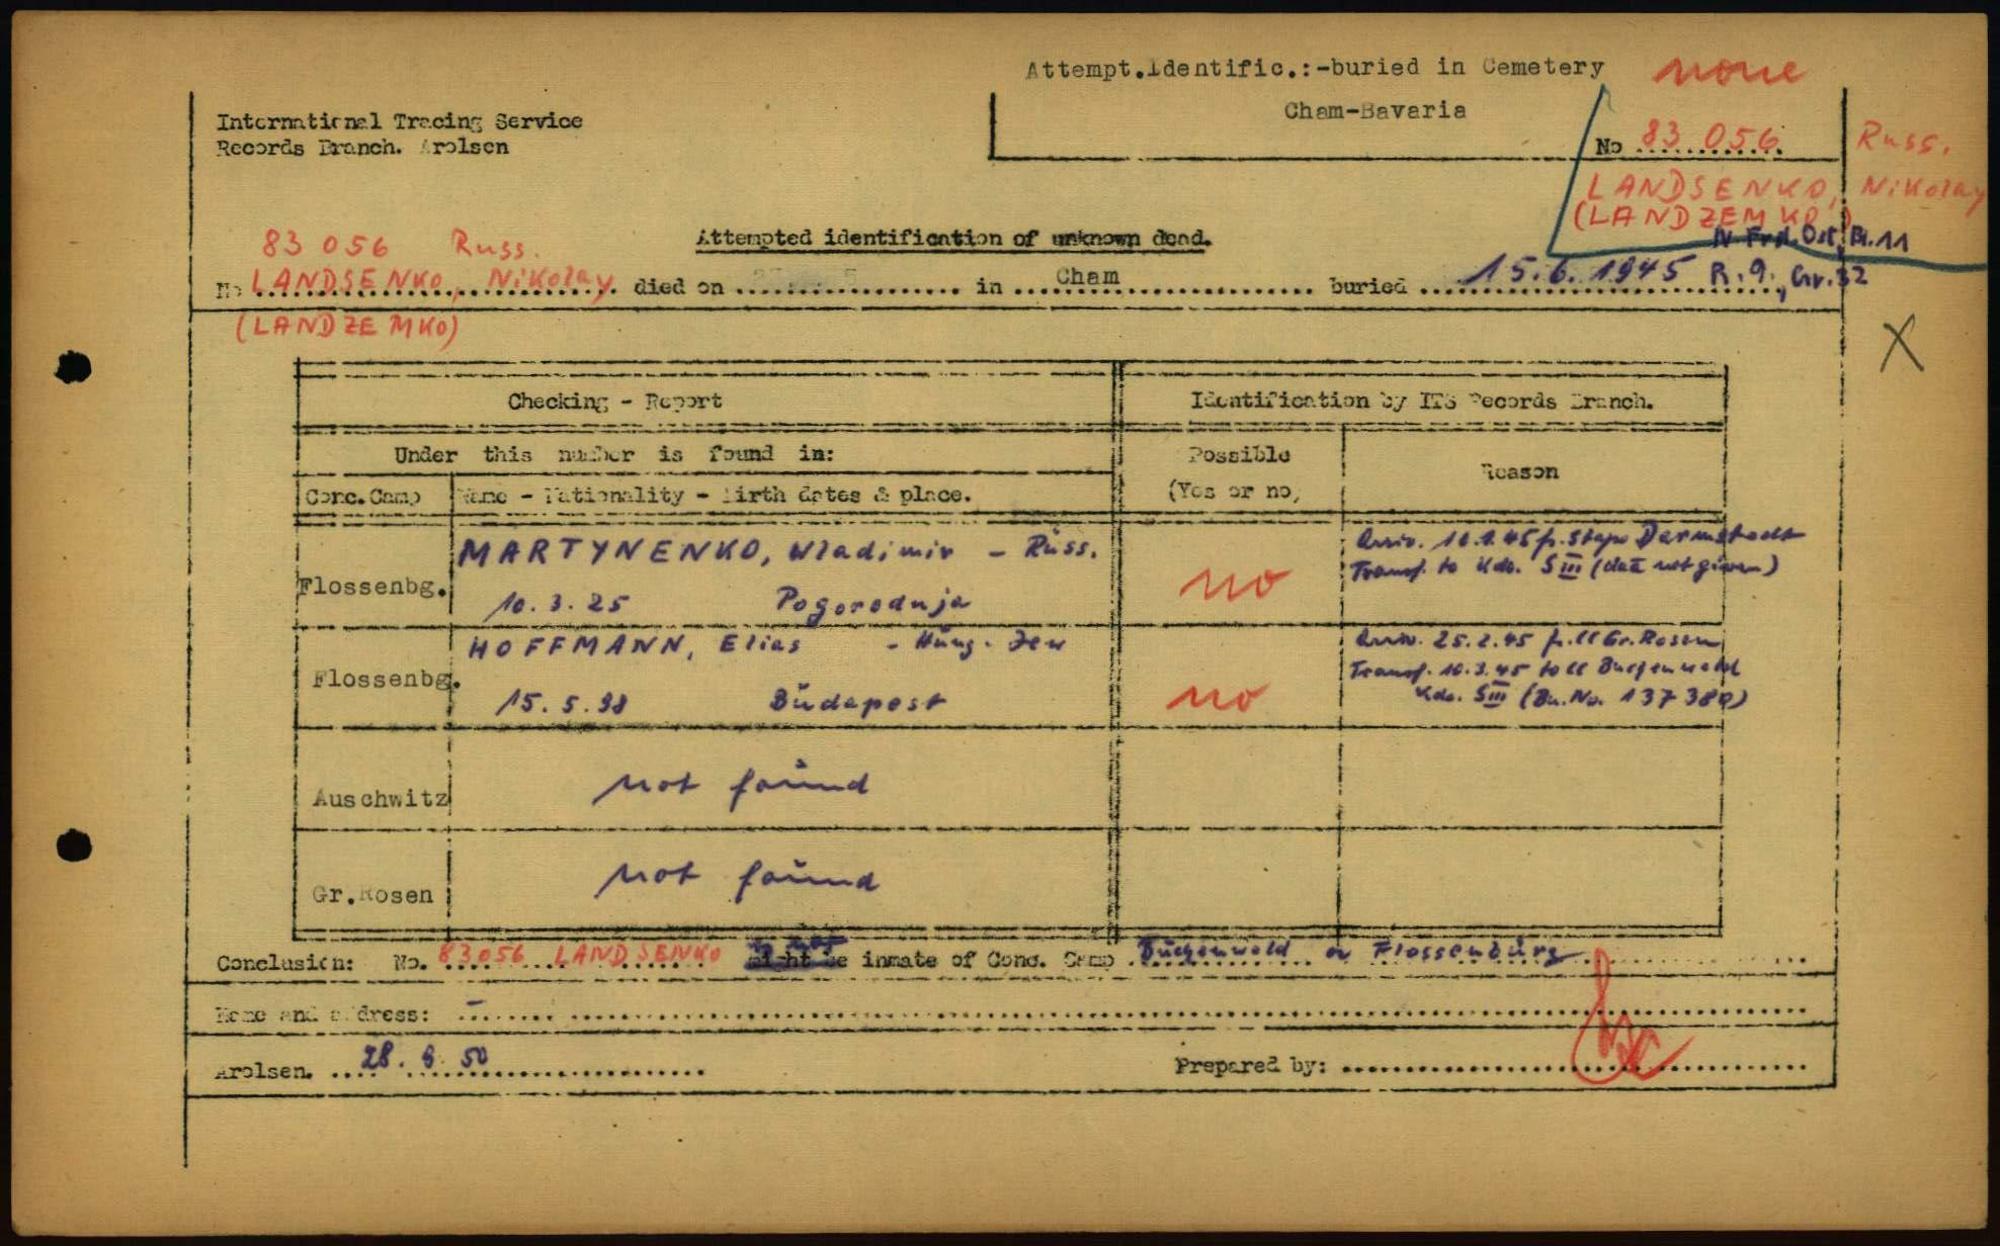 Attempt.Identific.:-buried in Cemetery none
Cham-Bavaria
International Tracing Service
Records Branch. Arolsen
No 83 056 Russ.
LANDSENKO, Nikolay
(LANDZEMKO)
83 056 Russ.
Attempted identification of unknown dead.
N Frd. Ost, Bl. 11
No LANDSENKO, Nikolay died on in Cham buried 15.6.1945 R.9, Gr.32
(LANDZEMKO)
X
Checking - Report Identification by ITS Records Branch.
Under this number is found in: Possible Reason
Conc.Camp Name - Nationality - Birth dates & place. (Yes or no,
Flossenbg. MARTYNENKO, Wladimir - Russ. no Arriv. 16.1.45 fr. Stapo Darmstadt
10.3.25 Pogorodnja Transf. to Kdo. SIII (date not given)
Flossenbg. HOFFMANN, Elias - Hung. Jew no Arriv. 25.2.45 fr. CC Gr. Rosen
15.5.98 Budapest Transf. 10.3.45 to CC Buchenwald
Kdo. SIII (Bu. No. 137 380)
Auschwitz not found
Gr.Rosen not found
Conclusion: No. 83056 LANDSENKO inmate of Conc. Camp Buchenwald or Flossenbürg
Name and address: -
Arolsen. 28. 8. 50 Prepared by: